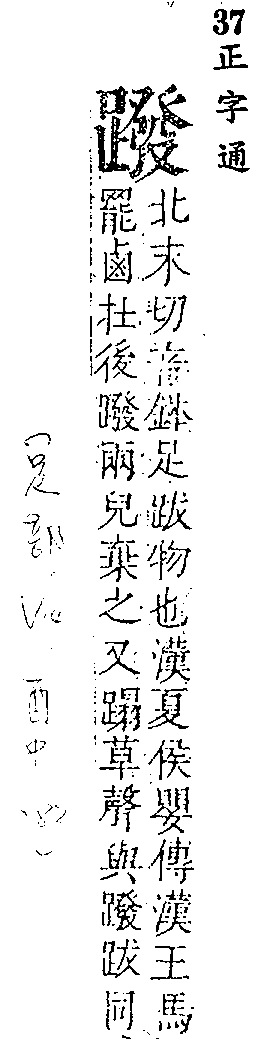 37
正字通
蹳
北末切音鉢足跋物也漢夏侯嬰傳漢王馬
罷鹵在後蹳兩兒棄之又蹋草聲與蹳跋同